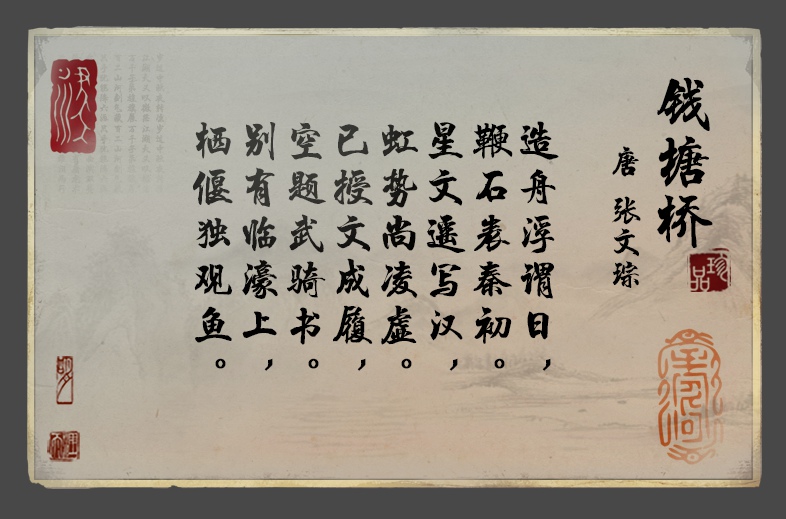 钱塘桥
唐 张文琮
造舟浮谓日，
鞭石表秦初。
星文遥写汉，
虹势尚凌虚。
已授文成履，
空题武骑书。
别有临濠上，
栖偃独观鱼。
珍品